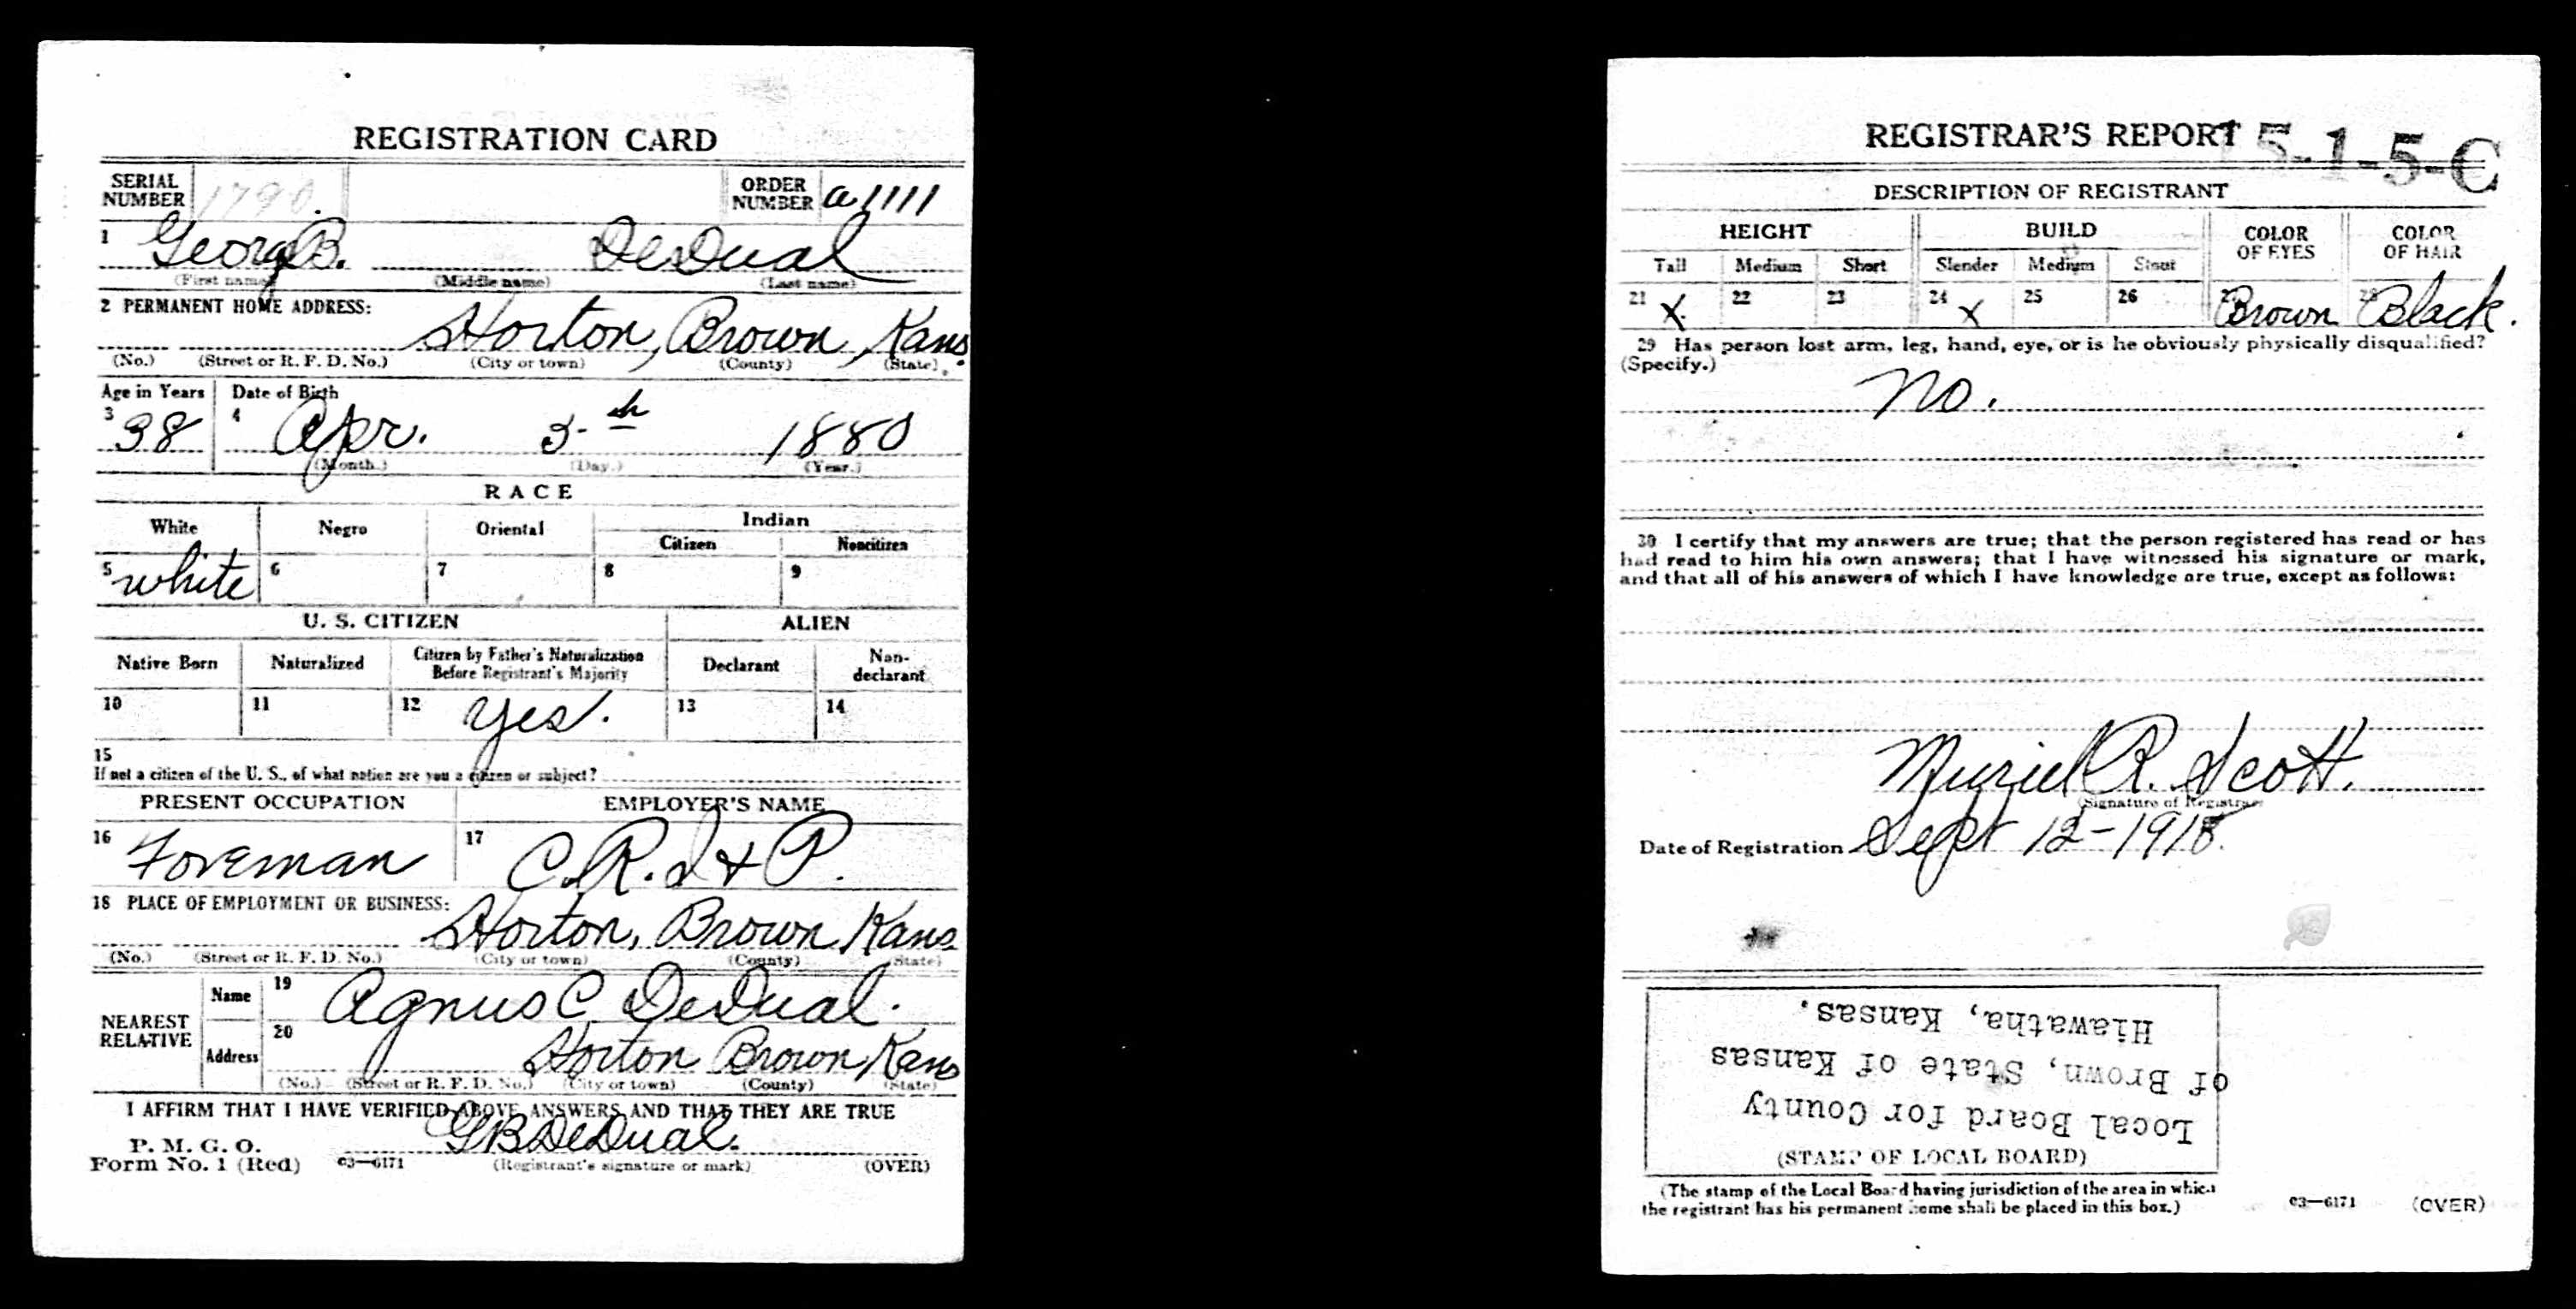 REGISTRATION CARD
SERIAL NUMBER 1790. ORDER NUMBER a1111
1 Georg B. DeDual
(First name) (Middle name) (Last name)
2 PERMANENT HOME ADDRESS:
Horton, Brown, Kans.
(No.) (Street or R. F. D. No.) (City or town) (County) (State)
Age in Years Date of Birth
3 38 4 Apr. 5th 1880
(Month.) (Day.) (Year.)
RACE
White Negro Oriental Indian
Citizen Noncitizen
5 white 6 7 8 9
U. S. CITIZEN ALIEN
Native Born Naturalized Citizen by Father's Naturalization Before Registrant's Majority Declarant Non-declarant
10 11 12 Yes. 13 14
15
If not a citizen of the U. S., of what nation are you a citizen or subject?
PRESENT OCCUPATION EMPLOYER'S NAME
16 Foreman 17 C. R. I & P.
18 PLACE OF EMPLOYMENT OR BUSINESS:
Horton, Brown Kans
(No.) (Street or R. F. D. No.) (City or town) (County) (State)
NEAREST RELATIVE
Name 19 Agnus C DeDual.
Address 20 Horton Brown Kans
(No.) (Street or R. F. D. No.) (City or town) (County) (State)
I AFFIRM THAT I HAVE VERIFIED ABOVE ANSWERS AND THAT THEY ARE TRUE
P. M. G. O.
Form No. 1 (Red) 03—6171 GB DeDual.
(Registrant's signature or mark) (OVER)
REGISTRAR'S REPORT
15-1-5-C
DESCRIPTION OF REGISTRANT
HEIGHT BUILD COLOR OF EYES COLOR OF HAIR
Tall Medium Short Slender Medium Stout
21 X 22 23 24 X 25 26 27 Brown 28 Black.
29 Has person lost arm, leg, hand, eye, or is he obviously physically disqualified?
(Specify.)
No.
30 I certify that my answers are true; that the person registered has read or has
had read to him his own answers; that I have witnessed his signature or mark,
and that all of his answers of which I have knowledge are true, except as follows:
Muriel R. Scott.
(Signature of Registrar)
Date of Registration Sept 12-1918.
Local Board for County
of Brown, State of Kansas
Hiawatha, Kansas.
(STAMP OF LOCAL BOARD)
(The stamp of the Local Board having jurisdiction of the area in which
the registrant has his permanent home shall be placed in this box.)
03—6171 (OVER)